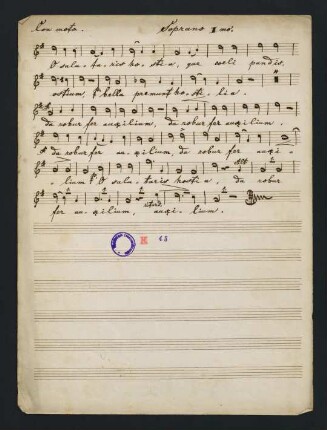 Con moto. Soprano 1 mo.
O salu - ta - ris ho - sti - a, quae coeli pandis
ostium, bella premunt ho - sti - lia.
da robur fer auxilium, da robur fer auxilium.
da robur fer au - xilium, da robur fer auxi -
lium O salu - taris hostia, da robur
fer au - xilium, auxi - lium.
K 18